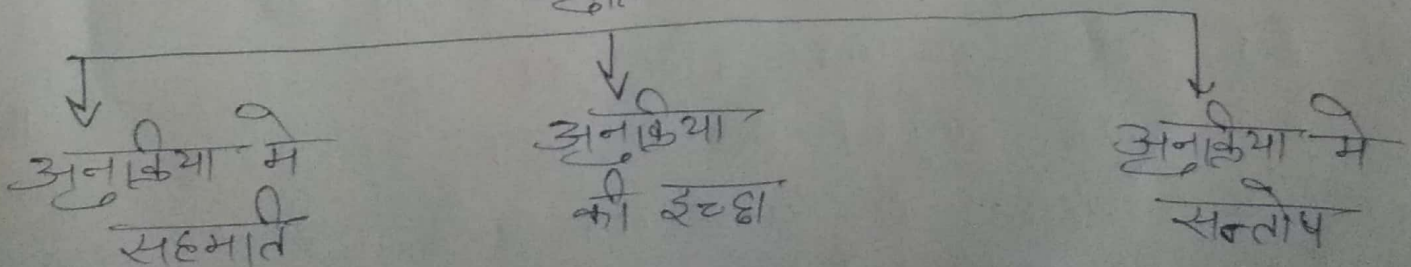 अनुक्रिया मे
सहमति
अनुक्रिया
की इच्छा
अनुक्रिया मे
सन्तोष